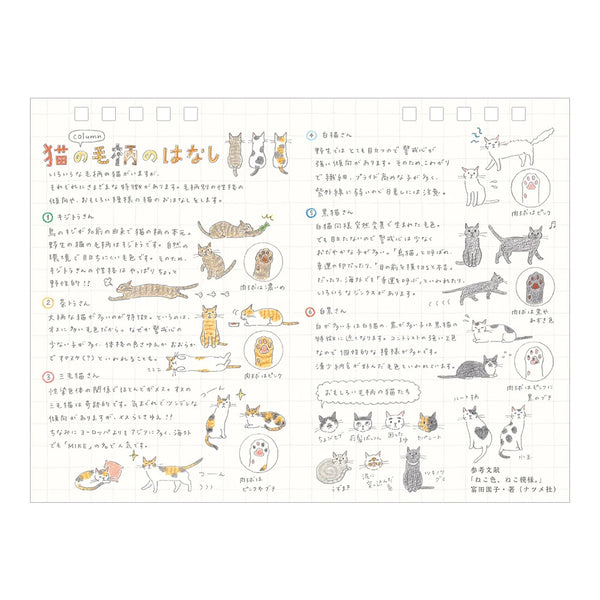 column
猫の毛柄のはなし
いろいろな毛柄の猫がいますが、
それぞれにさまざまな特徴があります。毛柄別の性格の
傾向や、おもしろい模様の猫のおはなしをします。
① キジトラさん
鳥のキジが名前の由来で猫の柄の本元。
野生の猫の毛柄はキジトラです。自然の
環境で目立ちにくい毛色です。そのため、
キジトラさんの性格はやっぱりちょっと
野性的!!
肉球は濃いめ
② 茶トラさん
大柄な猫が多いのが特徴。というのは、
オスに多い毛色だから。なぜか警戒心の
少ない子が多く、体格の良さゆえかおおらか
でオヤブン(?)といわれることも。
肉球はピンク
③ 三毛猫さん
性染色体の関係でほとんどがメス。オスの
三毛猫は奇跡的です。気まぐれでツンデレな
傾向がありますが、メスらしさゆえ!!
ちなみにヨーロッパよりもアジアに多く、海外
でも「MIKE」の名で人気です。
つーん
つーん
肉球は
ピンクやブチ
④ 白猫さん
野生ではとても目立つので警戒心が
強い傾向があります。そのため、こわがり
で繊細。プライド高めな子が多く、
紫外線に弱いので日差しには注意。
肉球はピンク
⑤ 黒猫さん
白猫同様、突然変異で生まれた毛色。
でも目立たないので警戒心は少なく
おだやかな子が多い。「烏猫」と呼ばれ、
幸運の印だったり、「目の前を横切ると不吉」
だったり。海外でも「幸運を呼ぶ」といわれたり、
いろいろなジンクスがあります。
肉球は黒や
あずき色
⑥ 白黒さん
白が多い子は白猫の、黒が多い子は黒猫の
特徴に近くなります。コントラストの強い2色
なので個性的な模様が多いです。
肉球はピンクに
黒のブチ
おもしろい毛柄の猫たち
ちょびヒゲ
困った
うずまき
ハートも
参考文献
「ねこ色、ねこ模様。」
冨田園子・著(ナツメ社)